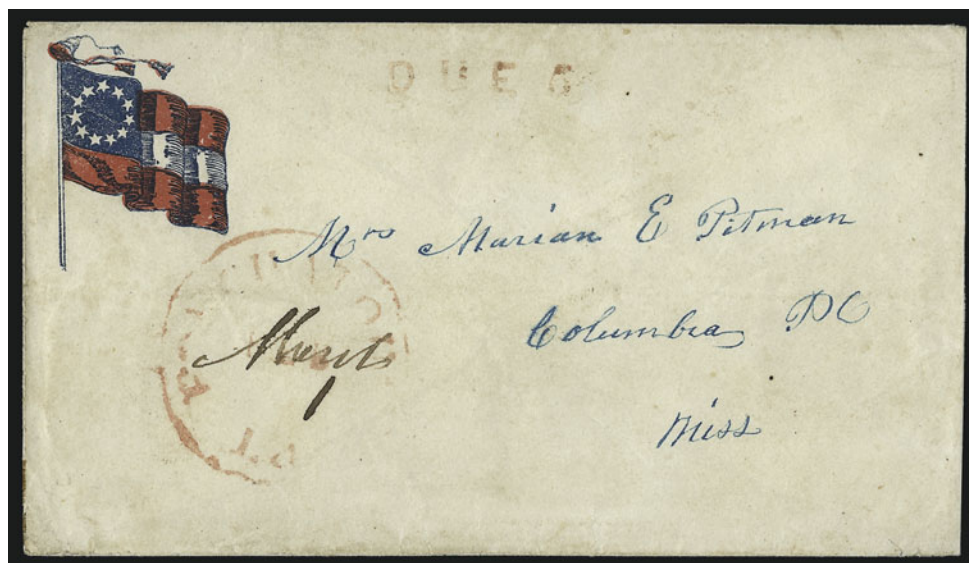 DUE 5
Mrs Marian E Pitman
Columbia PO
Miss